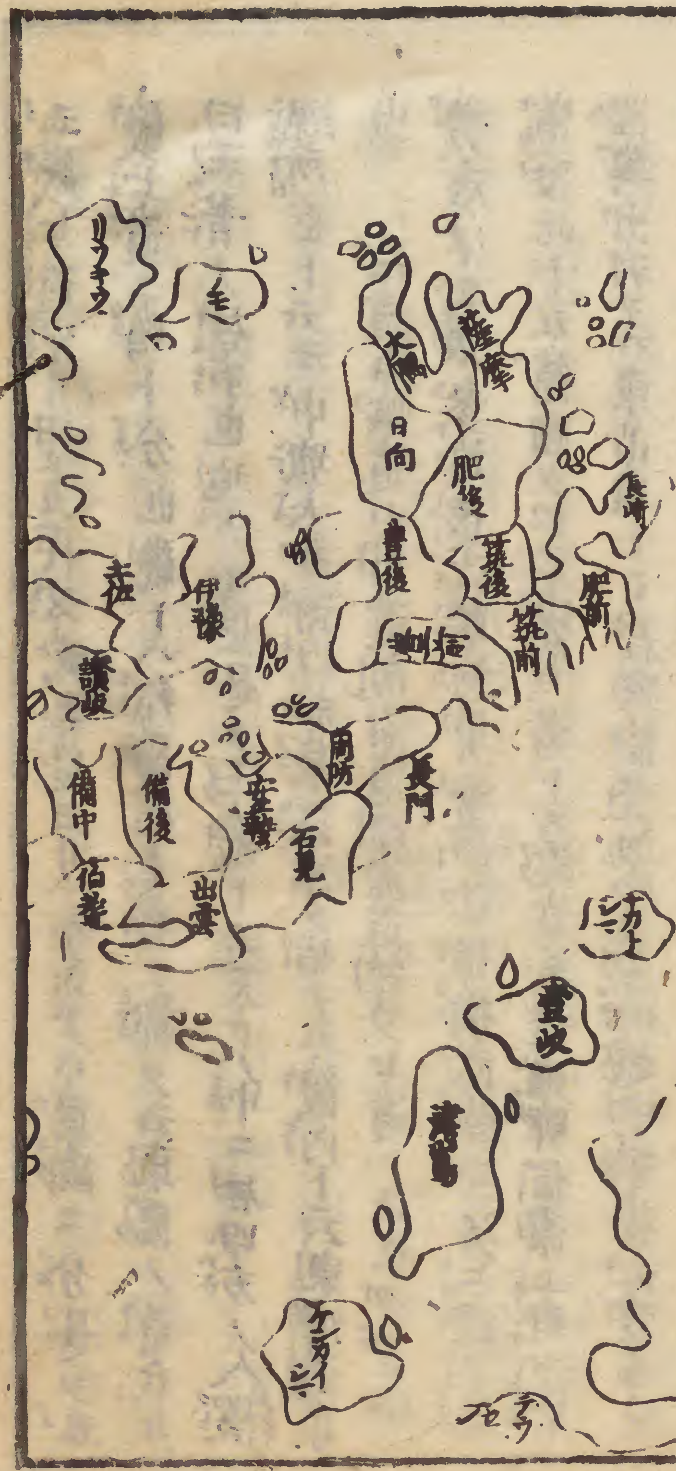 リウキウ
モ
大隅
薩摩
日向
肥後
長崎
豊後
筑後
肥前
筑前
土佐
伊豫
讃岐
周防
長門
備中
備後
安藝
石見
伯耆
出雲
壹岐
對馬
テウ
セ